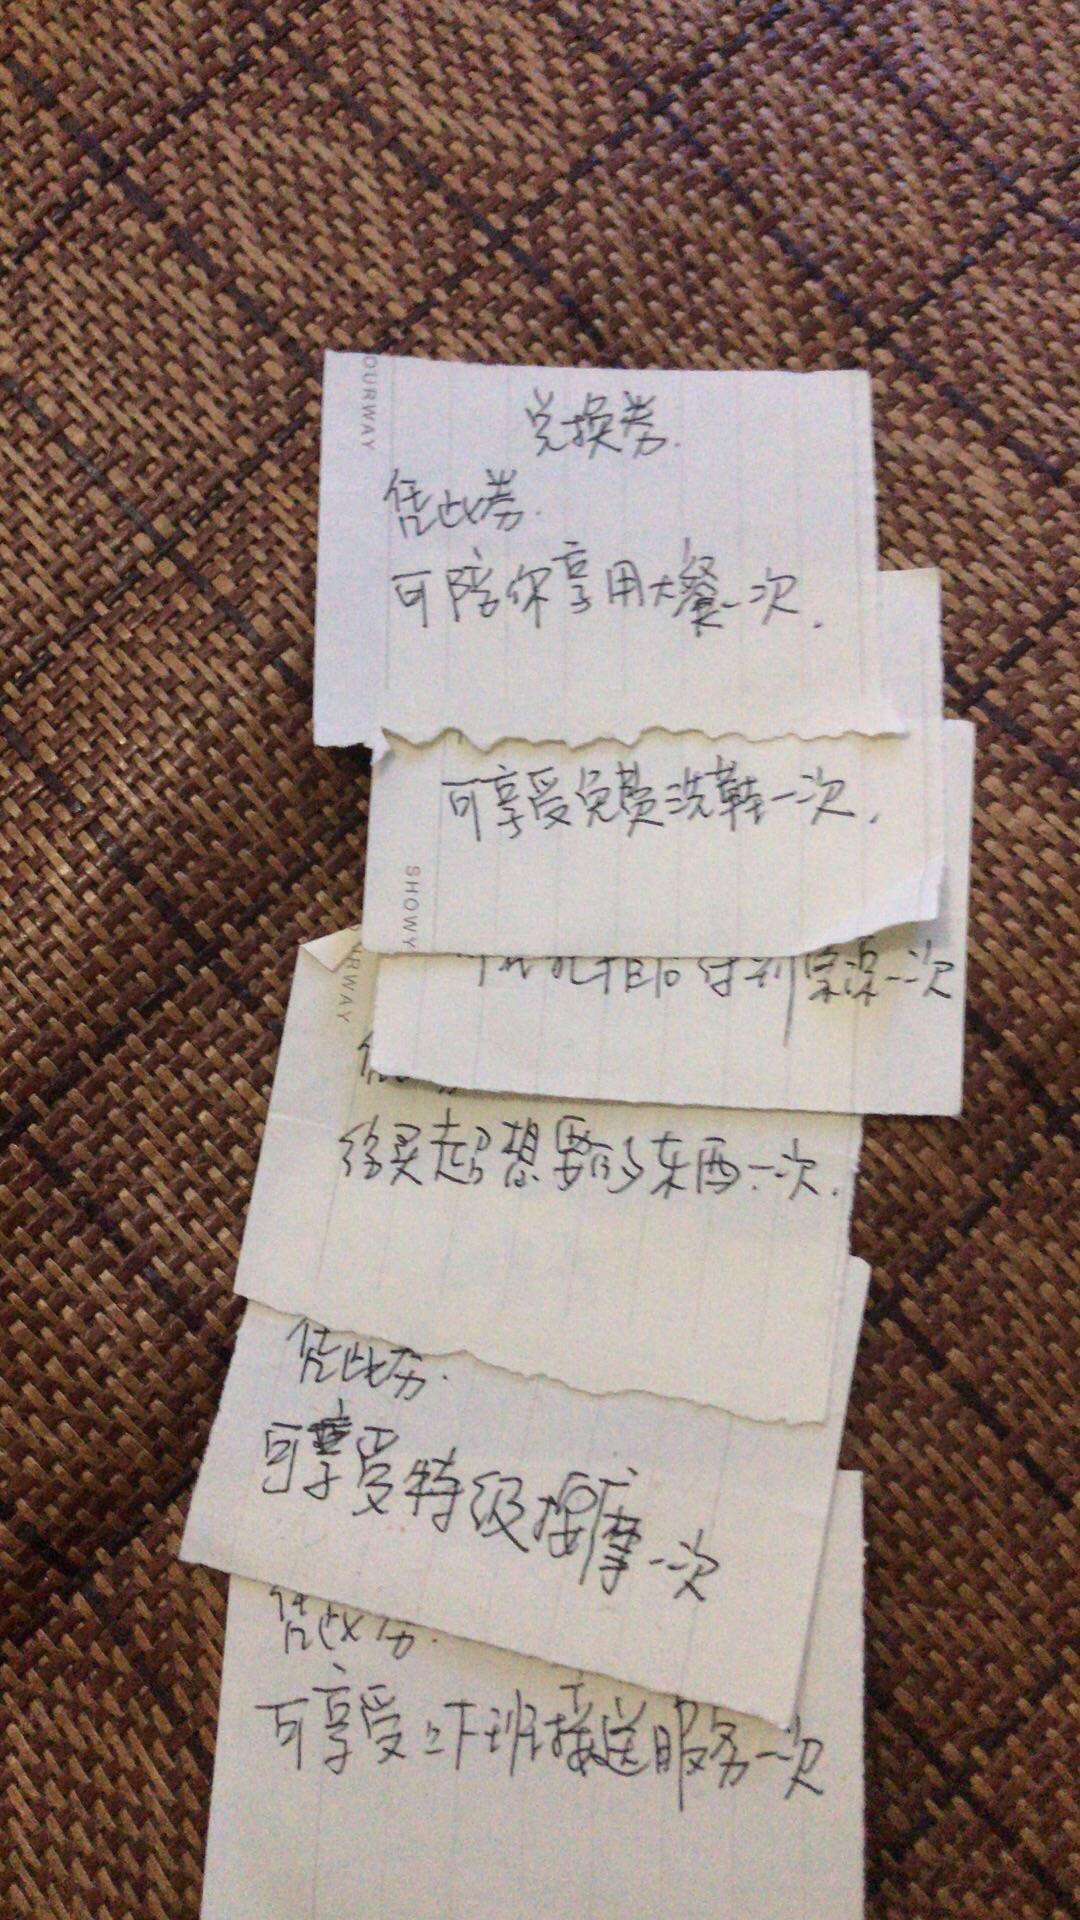 OURWAY
兑换券.
凭此券.
可陪你享用大餐一次.
可享受免费洗鞋一次.
SHOWY
一次
OURWAY
给买超想要的东西一次.
凭此券.
可享受特级按摩一次
凭此券.
可享受上下班接送服务一次